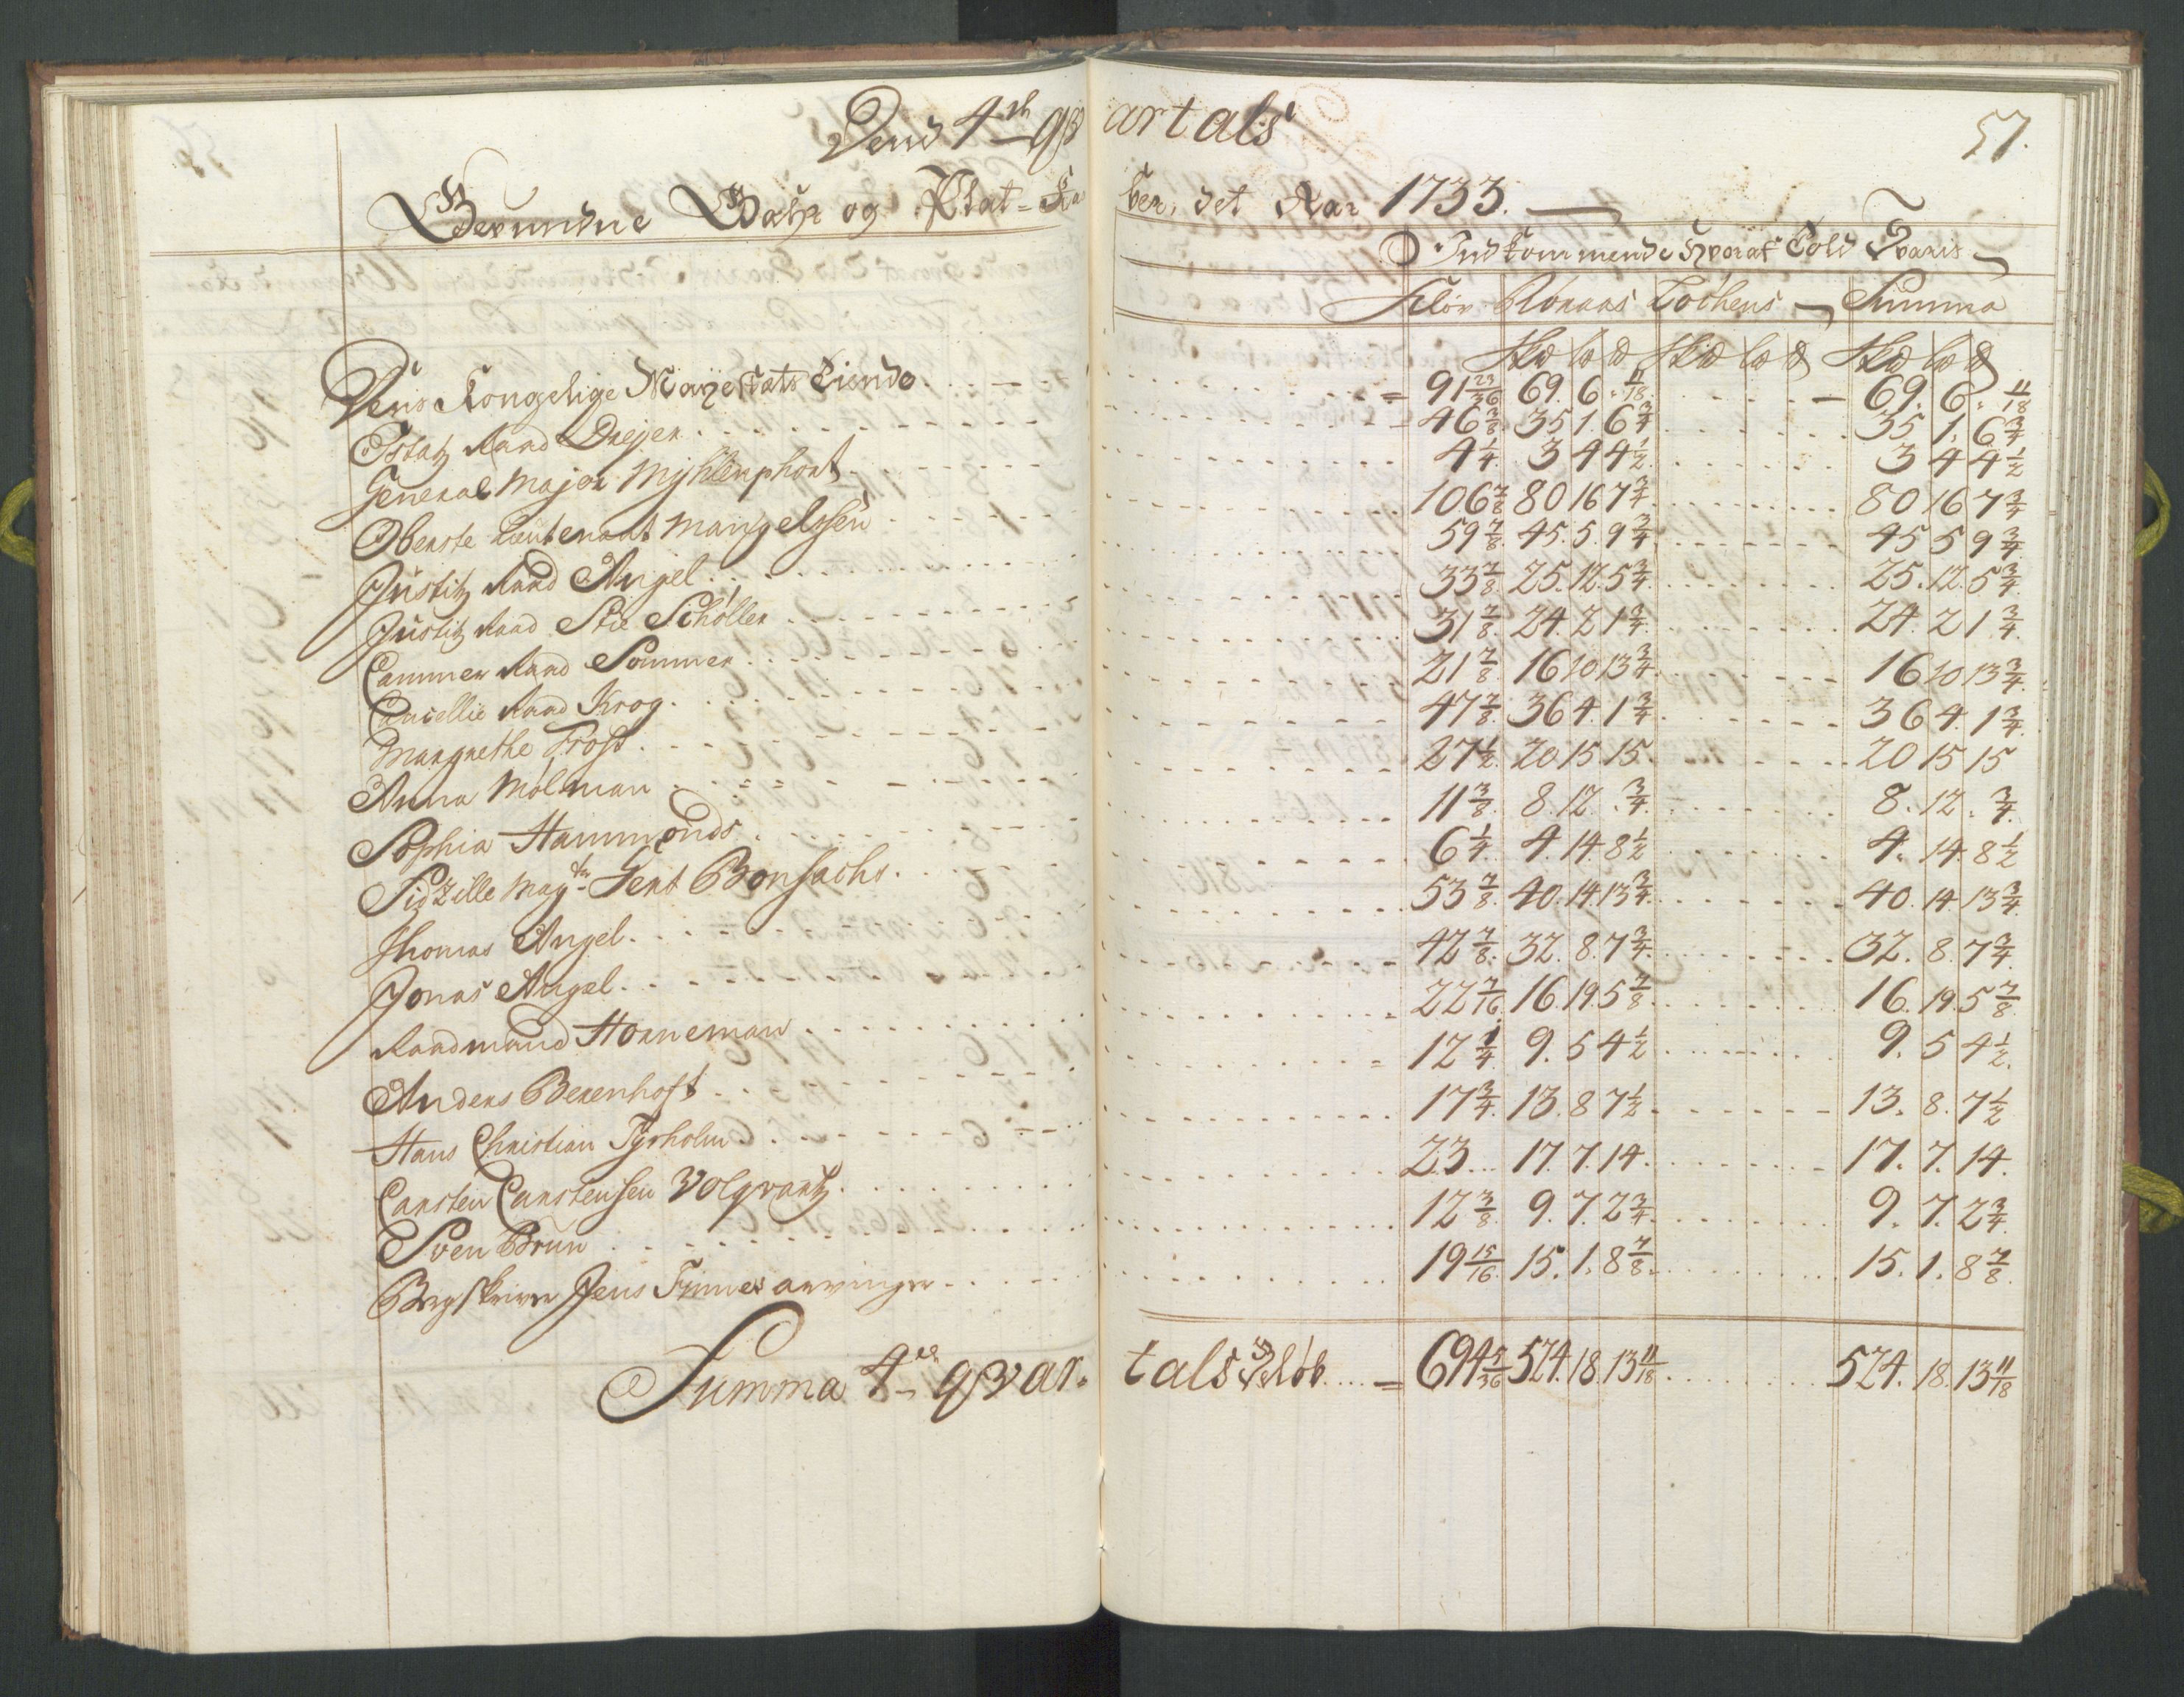 57.
Dend 4de qvartals
Gevundne Gahr og Plat-Kaaber, det Aar 1733.
Indkommende hvoraf Told Svaris
Kløv Røraas Løkens Summa
Sk℔ L℔ ℔ Sk℔ L℔ ℔ Sk℔ L℔ ℔
Dens Kongelige Mayestæts Tiende 91 23/36 69. 6. 11/18 69. 6. 11/18
Etatz Raad Dreyer 46 3/8 35 1. 6 3/4 35 1. 6 3/4
General Major Myhlenphort 4 1/4 3 4 4 1/2 3 4 4 1/2
Oberste Lieutenant Mangelssen 106 7/8 80 16 7 3/4 80 16 7 3/4
Justitz Raad Angel 59 7/8 45. 5. 9 3/4 45 5 9 3/4
Justitz Raad Stie Schøller 33 7/8 25. 12. 5 3/4 25. 12. 5 3/4
Cammer Raad Sommer 31 7/8 24. 2 1 3/4 24. 2 1 3/4
Cancellie Raad Krog 21 7/8 16 10 13 3/4 16 10 13 3/4
Margrethe Frost 47 7/8 36 4. 1 3/4 36 4. 1 3/4
Anna Mølman 27 1/2 20 15 15 20 15 15
Sophia Hammonds 11 3/8 8. 12 . 3/4 8. 12. 3/4
Sidzille Magtr Gert Bonsachs 6 1/4 4. 14. 8 1/2 4. 14 8 1/2
Thomas Angel 53 7/8 40. 14. 13 3/4 40. 14. 13 3/4
Jonas Angel 42 7/8 32. 8. 7 3/4 32. 8. 7 3/4
Raadmand Horneman 22 7/16 16. 19. 5 7/8 16. 19. 5 7/8
Anders Berenhoft 12 1/4 9. 5 4 1/2 9. 5 4 1/2
Hans Christian Tyrholm 17 3/4 13. 8 7 1/2 13. 8. 7 1/2
Carsten Carstensen Volqvartz 23 17. 7. 14. 17. 7. 14.
Sven Brun 12 3/8 9. 7. 2 3/4 9. 7. 2 3/4
Bergskriver Jens Finnes arvinger 19 15/16 15. 1. 8 7/8 15. 1. 8 7/8
Summa 4de qvartals Beløb 694 5/36 524. 18. 13 11/18 524. 18. 13 11/18